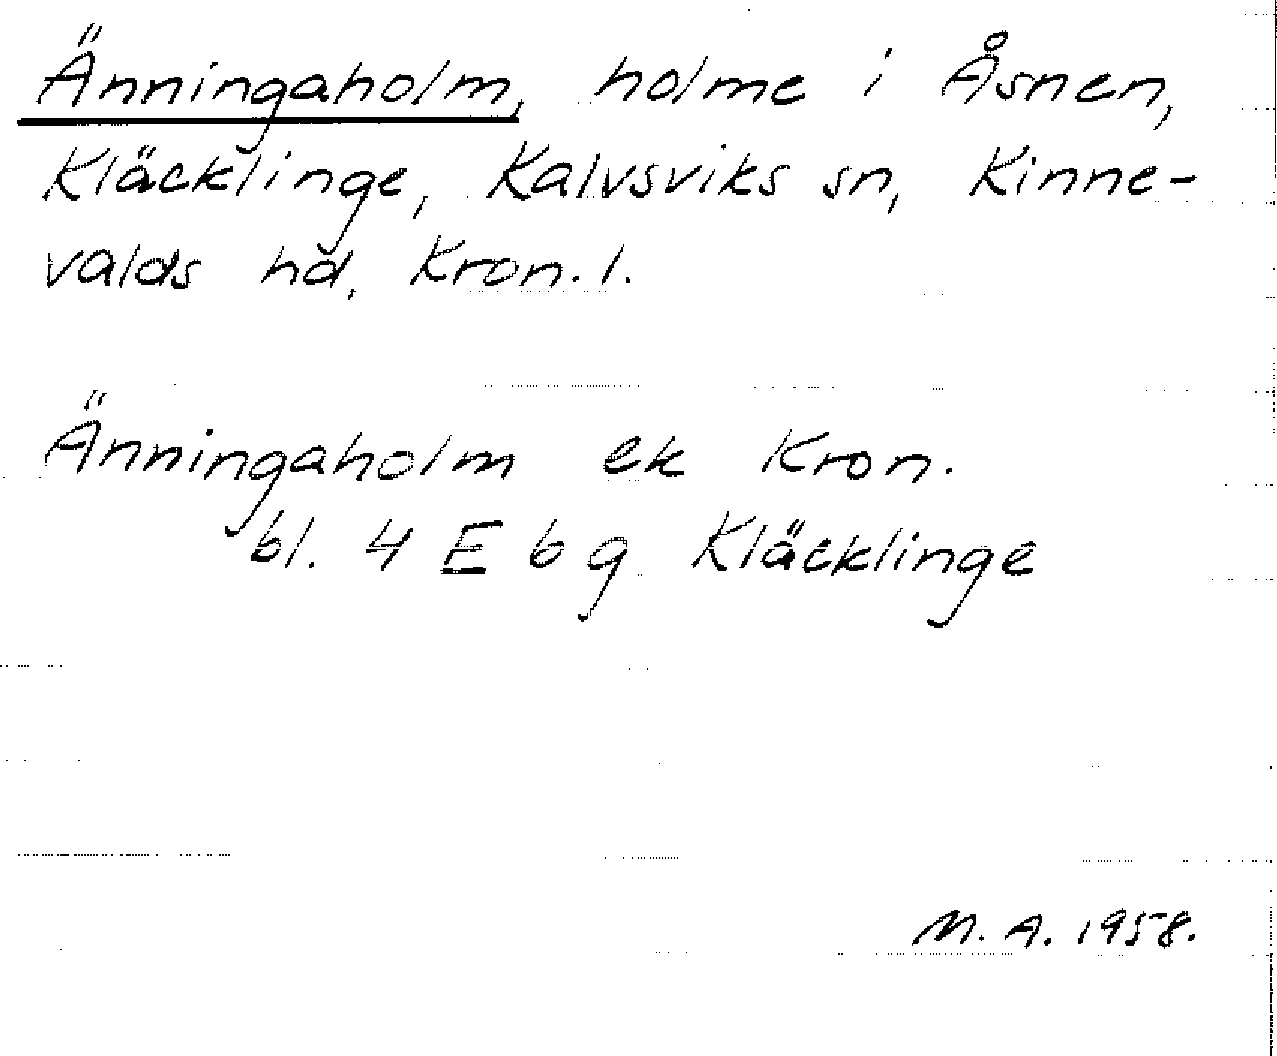 Änningaholm, holme i Åsnen,
Kläcklinge, Kalvsviks sn, Kinne-
valds hd, Kron. l.
Änningaholm ek Kron.
bl. 4 E b g Kläcklinge
M. A. 1958.